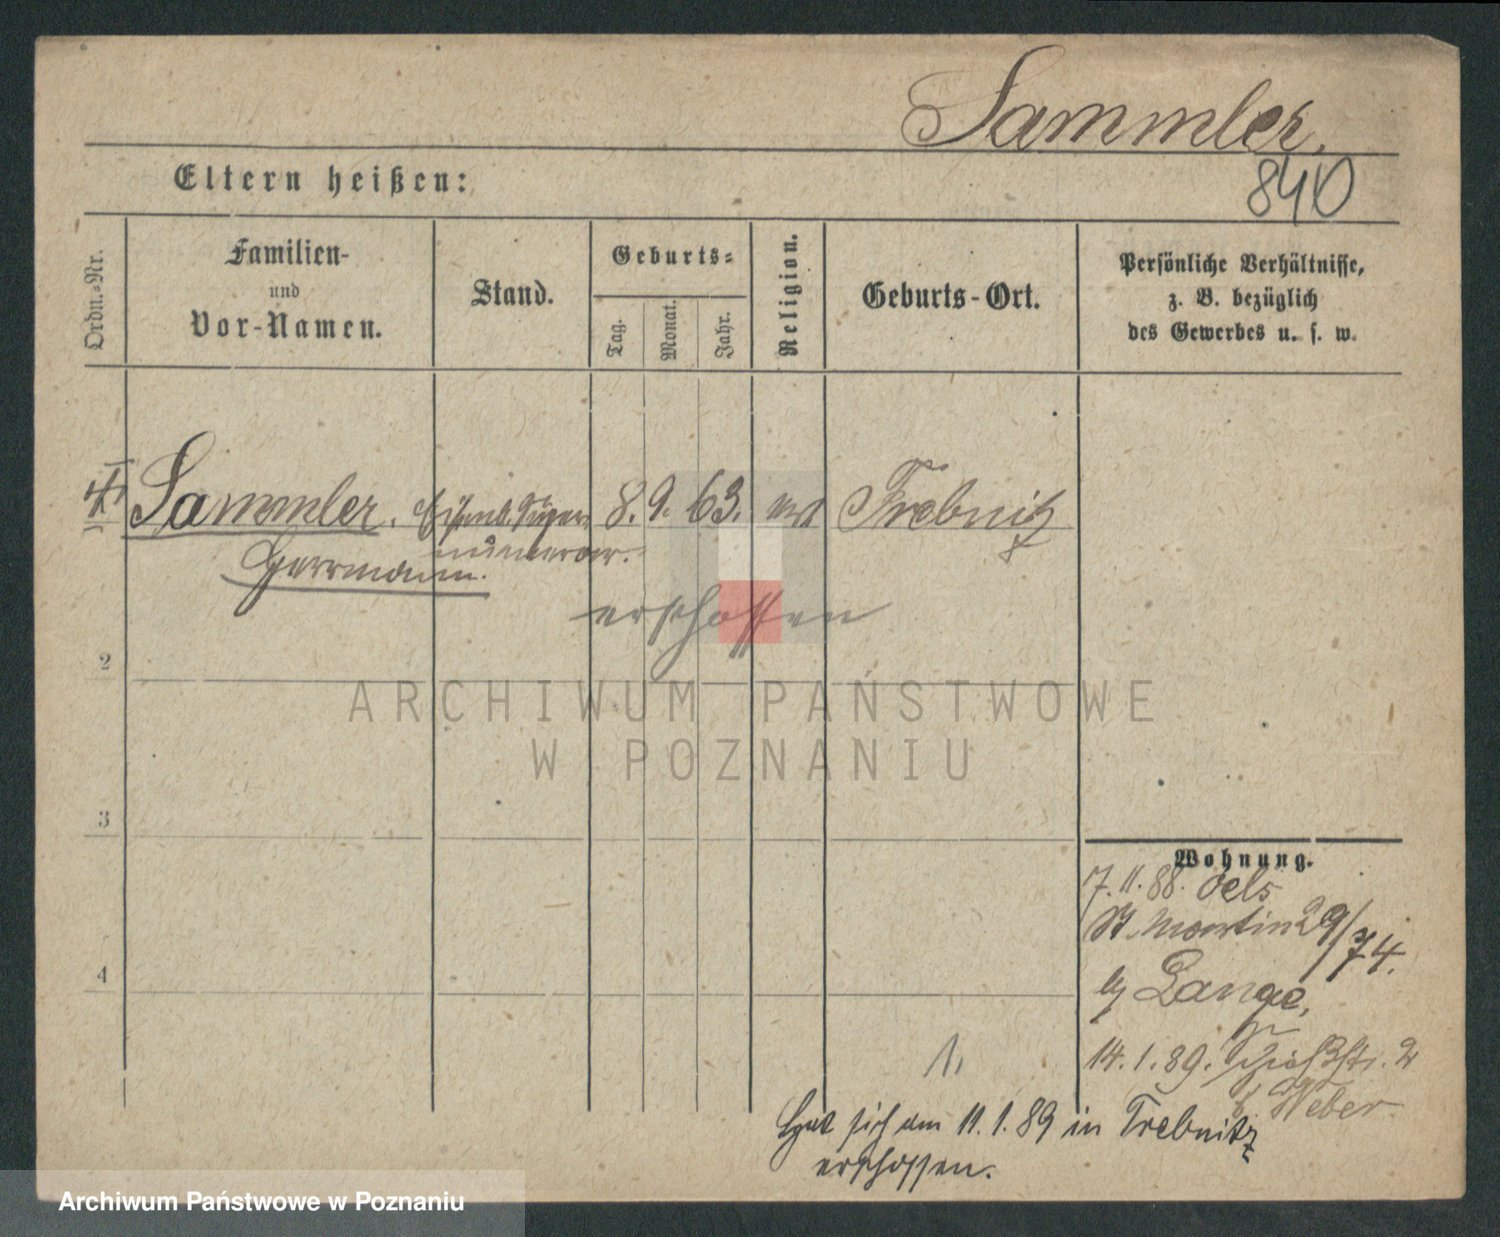 Sammler.
840
Eltern heißen:
Ordn.-Nr.
Familien-
und
Vor-Namen.
Stand.
Geburts-
Tag.
Monat.
Jahr.
Religion.
Geburts-Ort.
Persönliche Verhältnisse,
z. B. bezüglich
des Gewerbes u. s. w.
Sammler. 8. 9. 63. Trebnitz
Herrmann.
erschossen
2
ARCHIWUM PAŃSTWOWE
W POZNANIU
3
Wohnung.
7. 11. 88. Oels
St. Martin 29/74.
b/ Lange,
4
1.
14. 1. 89. 2
b/ Weber.
Hat sich am 11. 1. 89 in Trebnitz
erschossen.
Archiwum Państwowe w Poznaniu